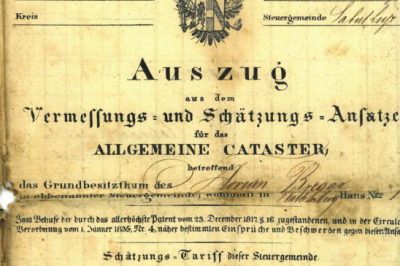 Kreis Steuergemeinde
Auszug
aus dem
Vermessungs- und Schätzungs-Ansatze
für das
ALLGEMEINE CATASTER,
betreffend
das Grundbesitzthum des Florian
in obbenannter Steuergemeinde, wohnhaft in Haus Nr.
Zum Behufe der durch das allerhöchste Patent vom 23. December 1817 § 16 zugestandenen, und in der Circular
Verordnung vom 1. Jänner 1835, Nr. 4, näher bestimmten Einsprüche und Beschwerden gegen diesen Ansatz
Schätzungs-Tariff dieser Steuergemeinde.